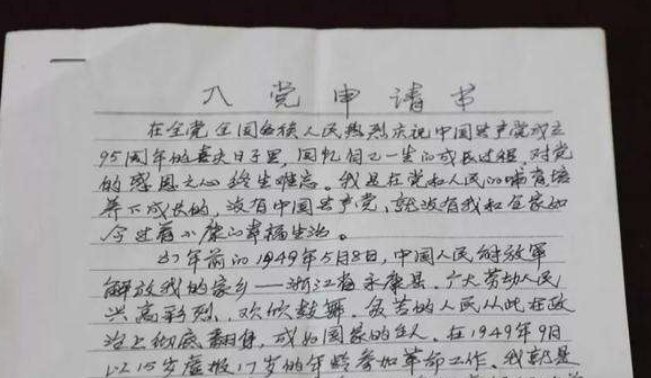 入党申请书
在全党全国各族人民热烈庆祝中国共产党成立
95周年的喜庆日子里,回忆自己一生的成长过程,对党
的感恩之心终生难忘。我是在党和人民的哺育培
养下成长的,没有中国共产党,就没有我和全家如
今过着小康的幸福生活。
67年前的1949年5月8日,中国人民解放军
解放我的家乡——浙江省永康县。广大劳动人民
兴高彩烈、欢欣鼓舞。穷苦的人民从此在政
治上彻底翻身,成如国家的主人。在1949年9月
以15岁虚报17岁的年龄参加革命工作。我就是